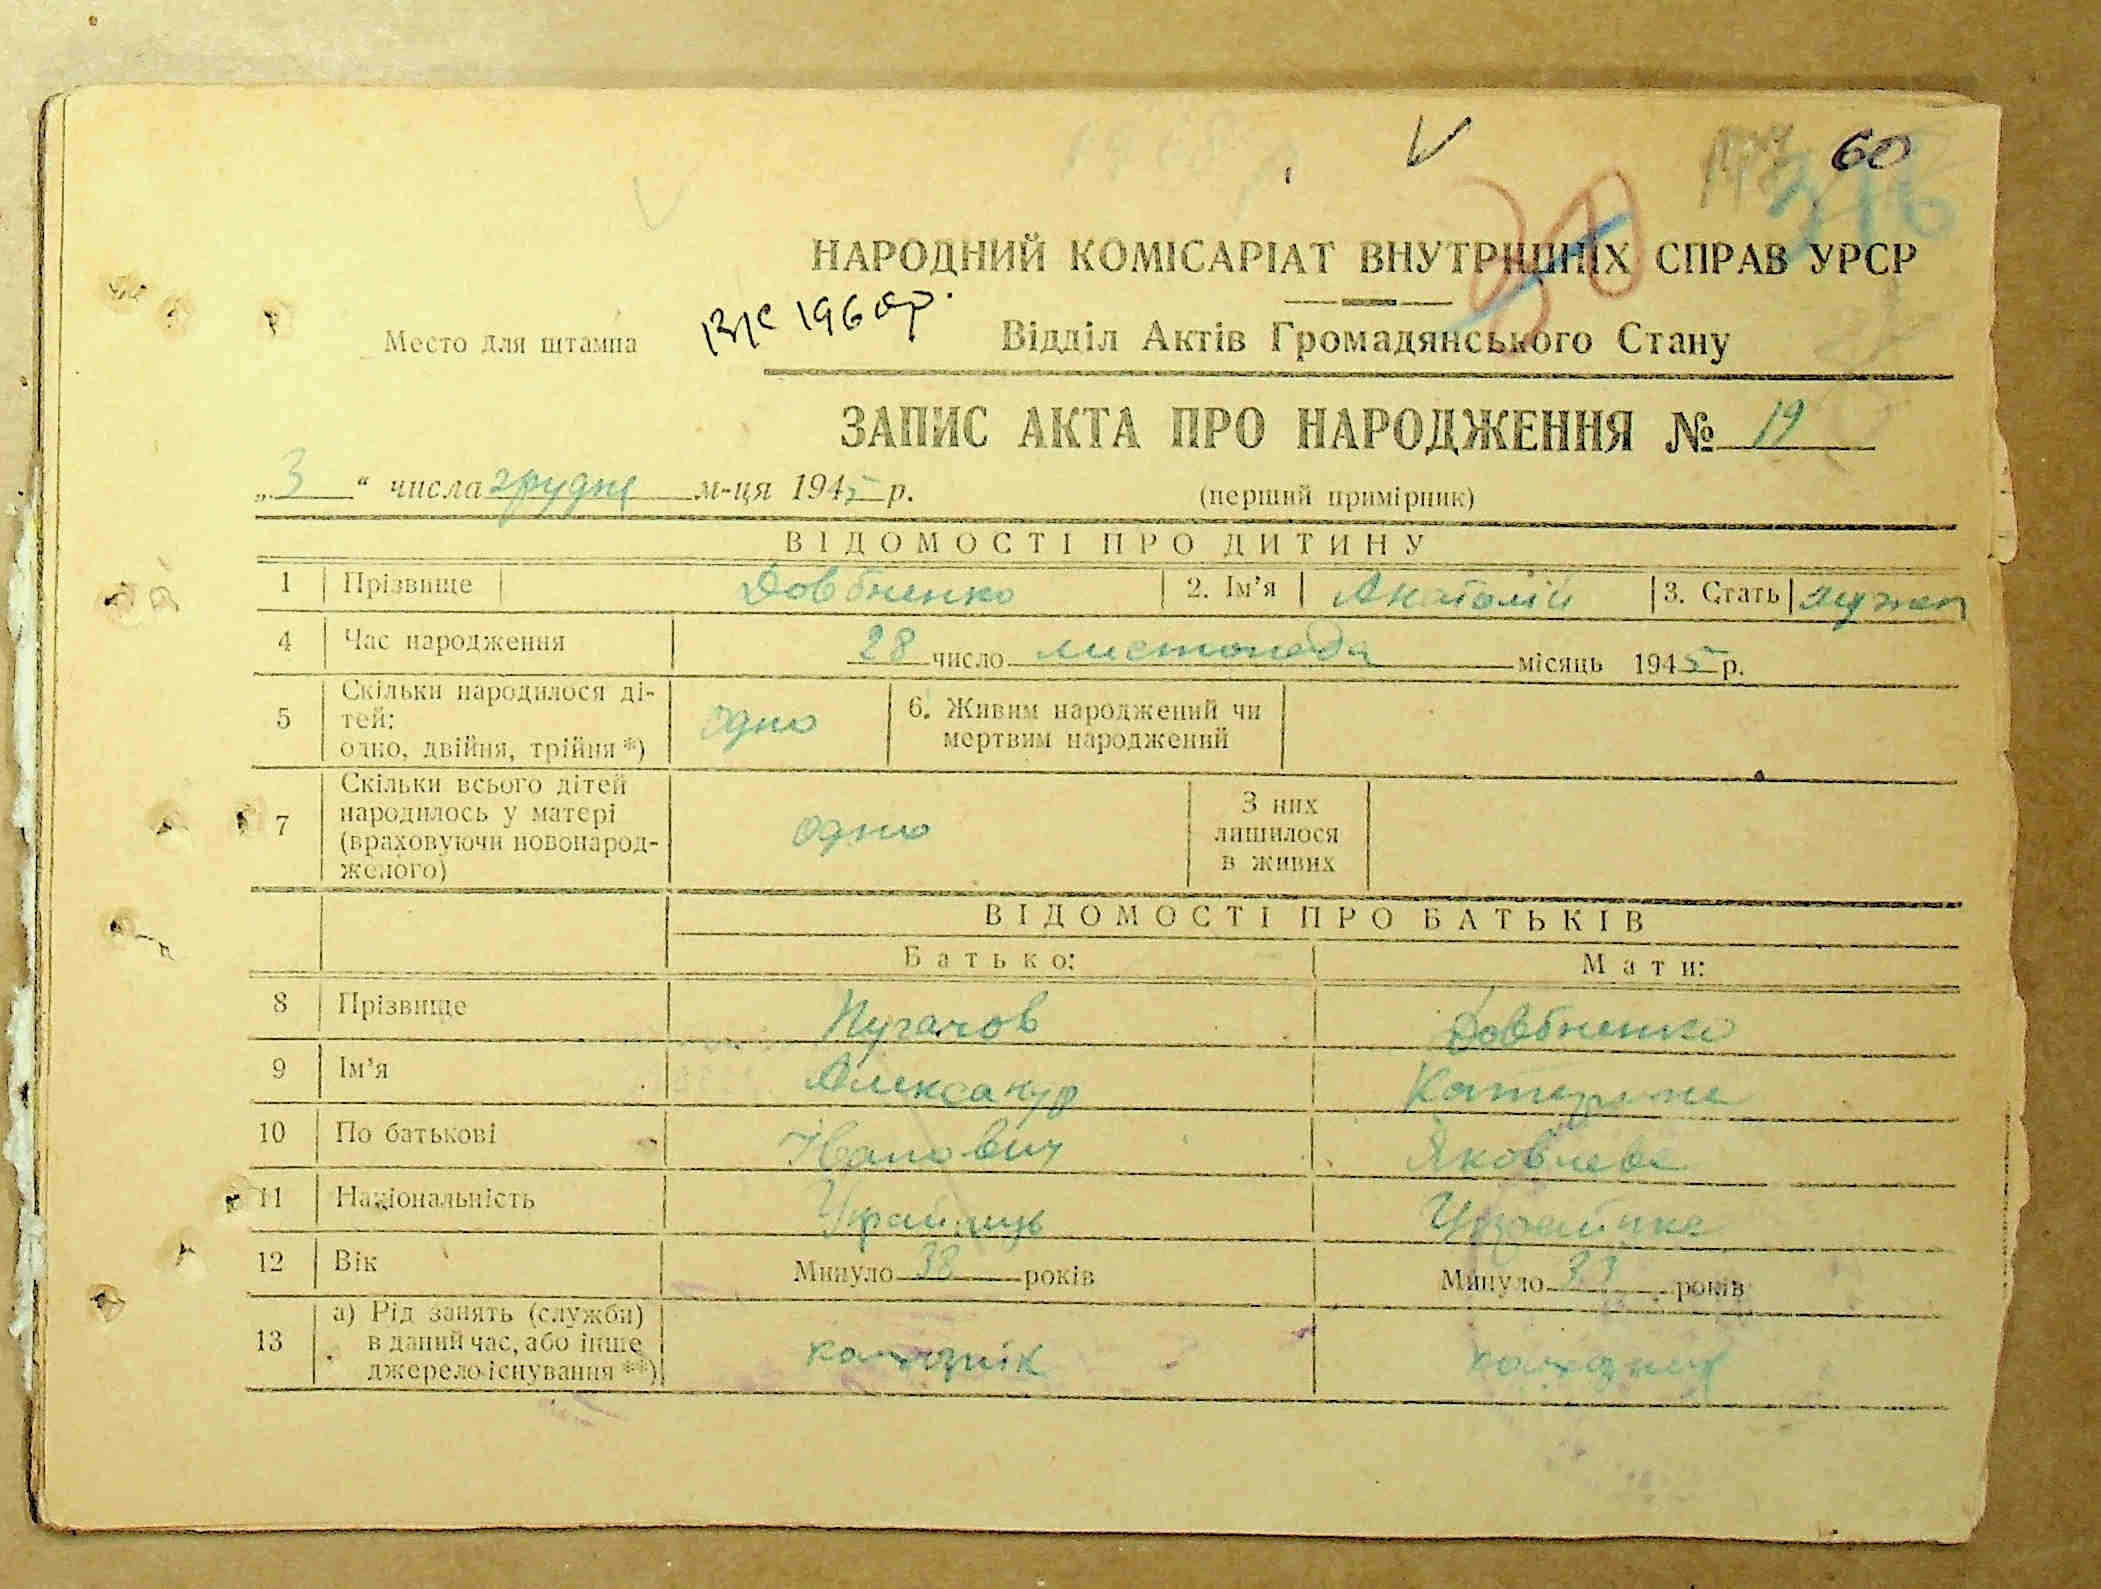 60
316
НАРОДНИЙ КОМІСАРІАТ ВНУТРІШНІХ СПРАВ УРСР
Место для штампа
Відділ Актів Громадянського Стану
ЗАПИС АКТА ПРО НАРОДЖЕННЯ № 19
„3“ числа грудня м-ця 1945 р. (перший примірник)
ВІДОМОСТІ ПРО ДИТИНУ
1 Прізвище Довбненко 2. Ім'я Анатолій 3. Стать мужеп
4 Час народження 28 число листопада місяць 1945 р.
5 Скільки народилося ді-
тей:
одно, двійня, трійня *) одно 6. Живим народжений чи
мертвим народжений
7 Скільки всього дітей
народилось у матері
(враховуючи новонарод-
женого) одно З них
лишилося
в живих
ВІДОМОСТІ ПРО БАТЬКІВ
Батько: Мати:
8 Прізвище Пугачов Довбненко
9 Ім'я Александр Катерина
10 По батькові Іванович Яковлева
11 Національність Українець Українка
12 Вік Минуло 38 років Минуло 33 років
13 а) Рід занять (служби)
в даний час, або інше
джерело існування **) колхознік колхозниця